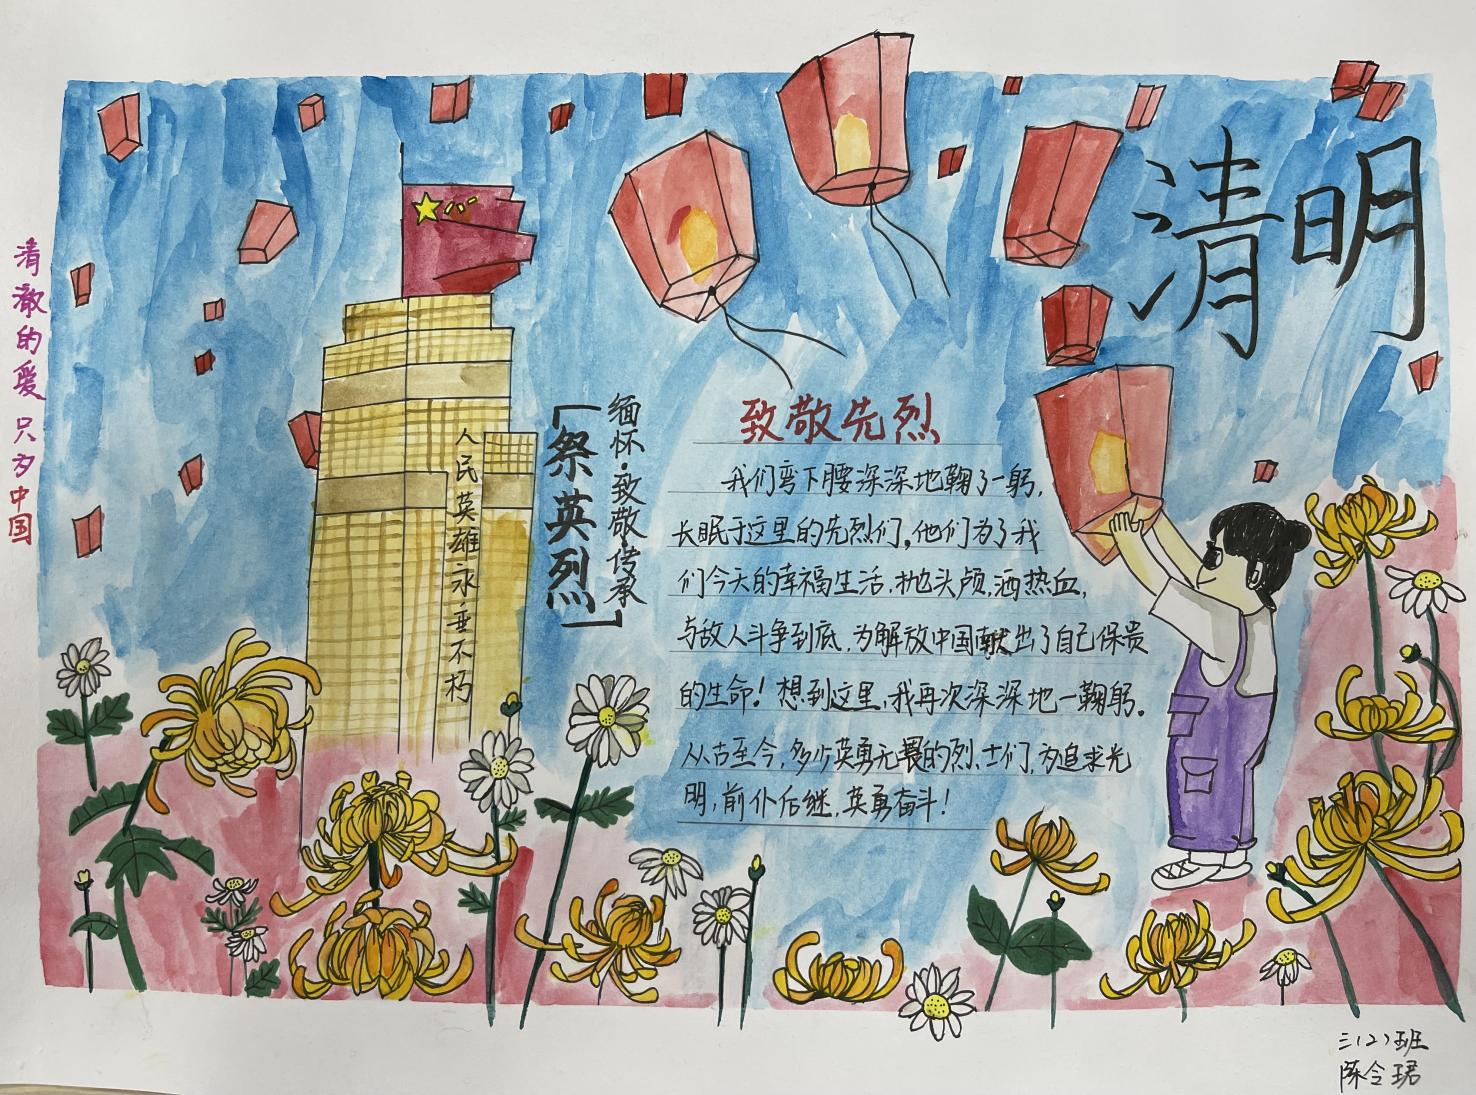 清明
清澈的爱 只为中国
人民英雄永垂不朽
缅怀·致敬·传承
「祭英烈」
致敬先烈
我们弯下腰深深地鞠了一躬,
长眠于这里的先烈们。他们为了我
们今天的幸福生活,抛头颅,洒热血,
与敌人斗争到底,为解放中国献出了自己保贵
的生命!想到这里,我再次深深地一鞠躬。
从古至今,多少英勇无畏的烈士们,为追求光
明,前仆后继,英勇奋斗!
三(2)班
陈令珺